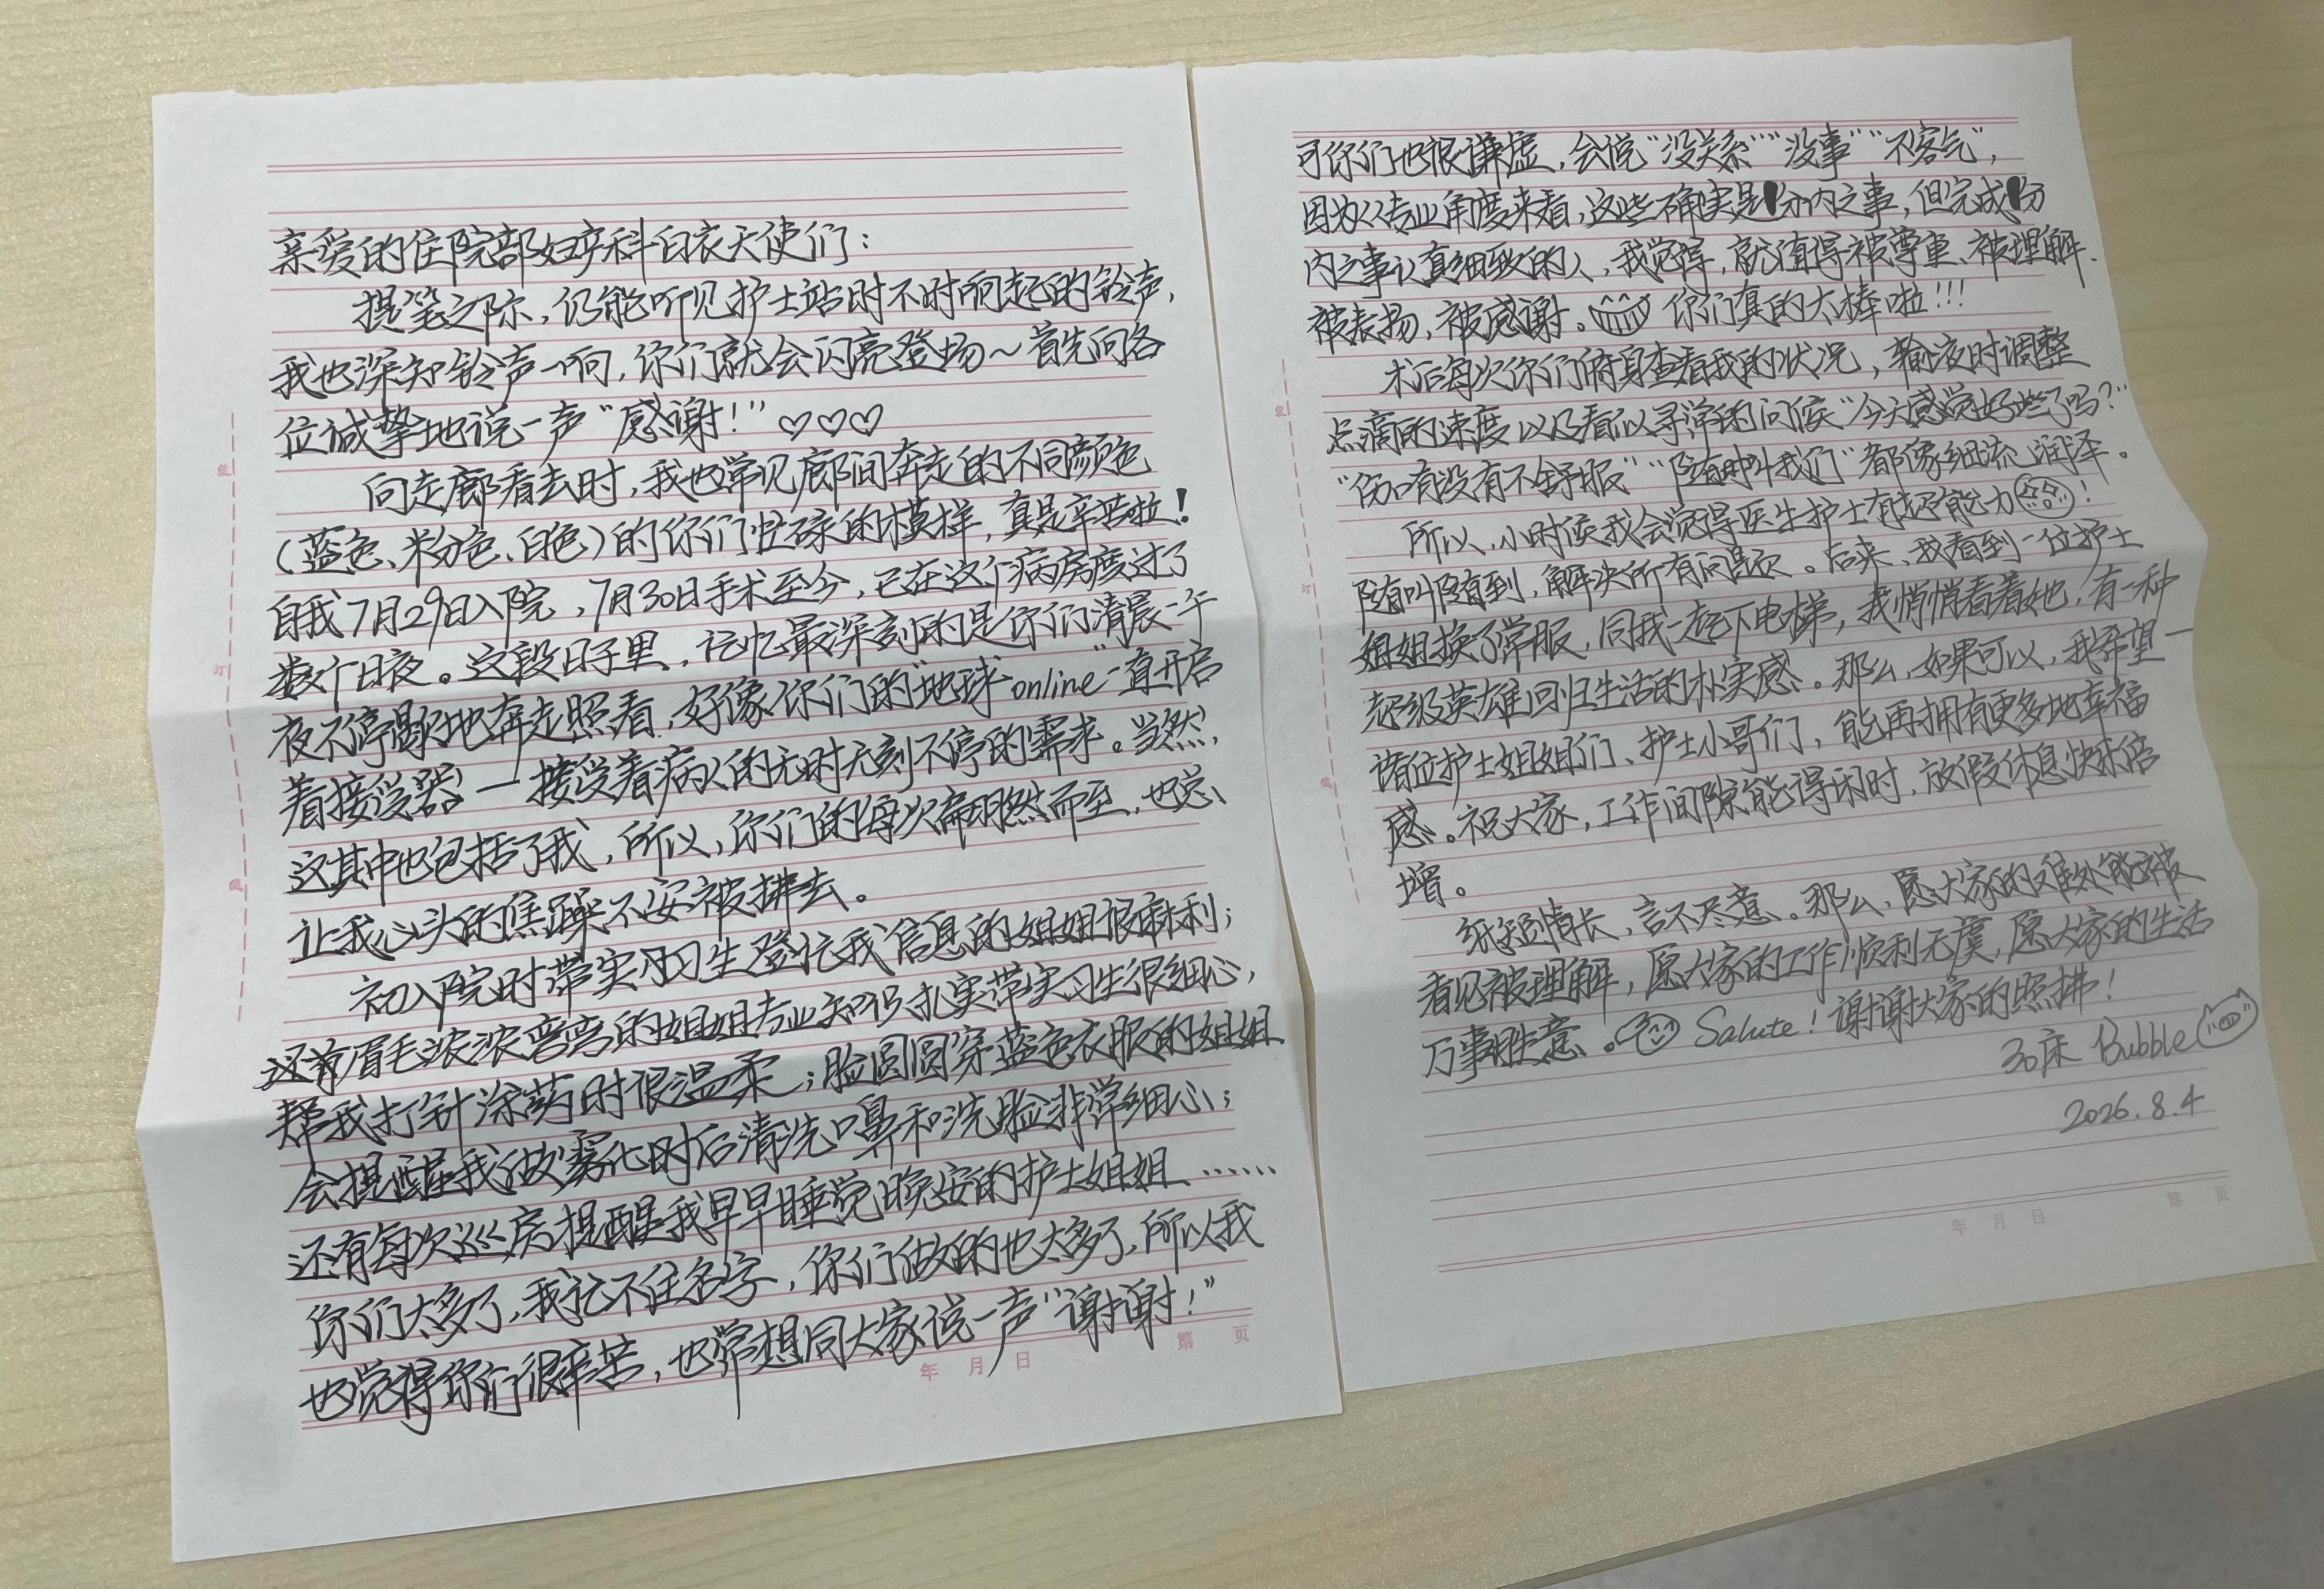 亲爱的住院部妇产科白衣天使们：
提笔之际，仍能听见护士站时不时响起的铃声，
我也深知铃声一响，你们就会闪亮登场～首先向各
位诚挚地说一声“感谢！”♡♡♡
向走廊看去时，我也常见廊间奔走的不同颜色
（蓝色、粉色、白色）的你们忙碌的模样，真是辛苦啦！
自我7月29日入院，7月30日手术至今，已在这个病房度过了
数个日夜。这段日子里，记忆最深刻的是你们清晨午
夜不停歇地奔走照看，好像你们的“地球online”一直开启
着接受器一接受着病人的无时无刻不停的需求。当然，
这其中也包括了我，所以，你们的每次翩然而至，也总
让我心头的焦躁不安被拂去。
初入院时带实习生登记我信息的姐姐很麻利；
还有眉毛浓浓弯弯的姐姐专业知识扎实带实习生很细心，
帮我打针涂药时很温柔；脸圆圆穿蓝色衣服的姐姐
会提醒我做雾化时后清洗口鼻和洗脸非常细心；
还有每次巡房提醒我早早睡觉晚安的护士姐姐……
你们太多了，我记不住名字，你们做的也太多了，所以我
也觉得你们很辛苦，也常想同大家说一声“谢谢！”
年 月 日 第 页
可你们也很谦虚，会说“没关系”“没事”“不客气”，
因为从专业角度来看，这些确实是分内之事，但完成分
内之事认真细致的人，我觉得，就值得被尊重、被理解、
被表扬，被感谢。你们真的太棒啦!!!
术后每次你们俯身查看我的状况，输液时调整
点滴的速度以及看似寻常的问候“今天感觉好些了吗？”
“伤口有没有不舒服”“随时叫我们”都像细流润泽。
所以，小时候我会觉得医生护士有超能力！
随叫随到，解决所有问题。后来，我看到一位护士
姐姐换了常服，同我一起下电梯，我悄悄看着她，有一种
超级英雄回归生活的朴实感。那么，如果可以，我希望一
诸位护士姐姐们、护士小哥们，能再拥有更多地幸福
感。祝大家，工作间隙能得闲时，放假休息快乐倍
增。
纸短情长，言不尽意。那么，愿大家的难处能被
看见被理解，愿大家的工作顺利无虞，愿大家的生活
万事胜意。Salute！谢谢大家的照拂！
30床 Bubble
2026.8.4
年 月 日 第 页